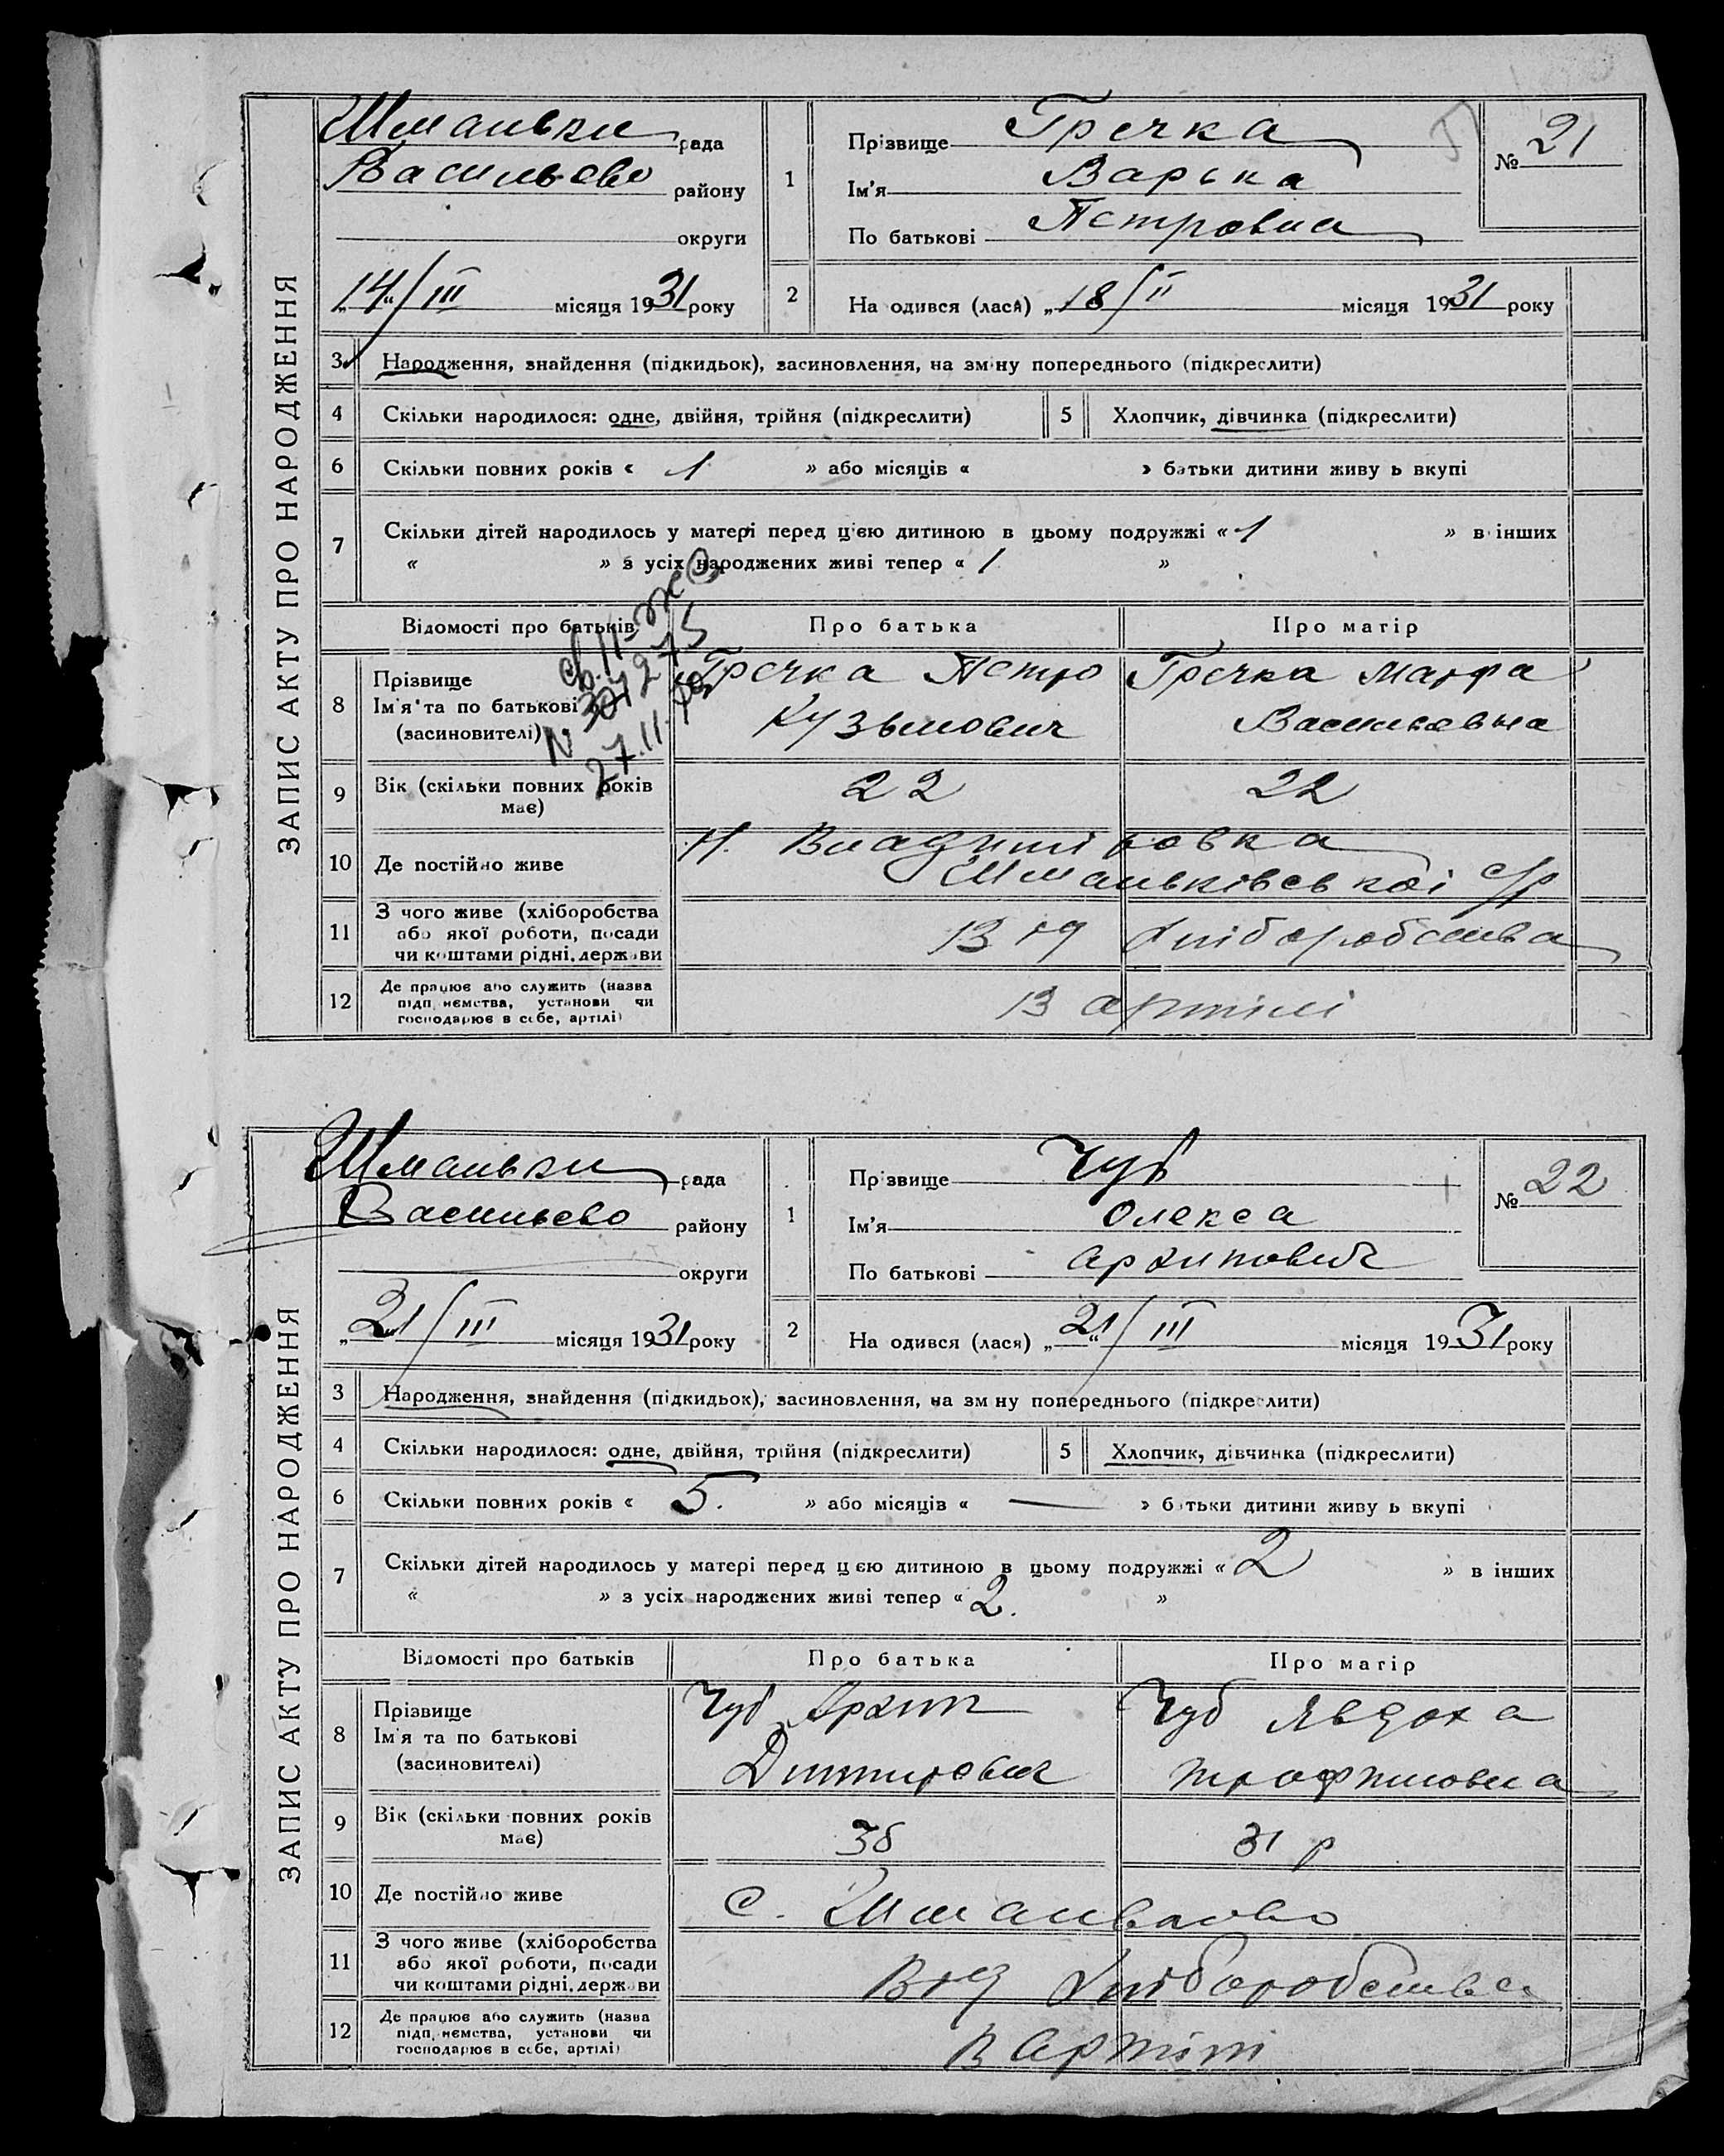 ЗАПИС АКТУ ПРО НАРОДЖЕННЯ
Шманьки рада
Васильево району
округи
„14“/III місяця 1931 року
1
Прізвище Гречка
Ім'я Варька
По батькові Петровна
№ 21
2
На одився (лася) „18/II місяця 1931 року
3
Народження, знайдення (підкидьок), засиновлення, на зм ну попереднього (підкреслити)
4
Скільки народилося: одне, двійня, трійня (підкреслити)
5
Хлопчик, дівчинка (підкреслити)
6
Скільки повних років « 1 » або місяців « » батьки дитини живу ь вкупі
7
Скільки дітей народилось у матері перед цією дитиною в цьому подружжі « 1 » в інших
« » з усіх народжених живі тепер « 1 »
Відомості про батьків
Про батька
Про матір
8
Прізвище
Ім'я та по батькові
(засиновителі)
Гречка Петро
Кузьмович
Гречка Марфа
Васильевна
9
Вік (скільки повних років
має)
22
22
10
Де постійно живе
Н. Владиміровка
Шманьківської с/р
11
З чого живе (хліборобства
або якої роботи, посади
чи коштами рідні, держави
Від хліборобства
12
Де працює або служить (назва
підп иємства, установи чи
господарює в себе, артілі)
В артілі
27.11.
ЗАПИС АКТУ ПРО НАРОДЖЕННЯ
Шманьки рада
Васильево району
округи
„21“/III місяця 1931 року
1
Пр звище Чуб
Ім'я Олекса
По батькові Архипович
№ 22
2
На одився (лася) „21“/III місяця 1931 року
3
Народження, знайдення (підкидьок), засиновлення, на зм ну попереднього (підкреслити)
4
Скільки народилося: одне, двійня, трійня (підкреслити)
5
Хлопчик, дівчинка (підкреслити)
6
Скільки повних років « 5. » або місяців « — » б тьки дитини живу ь вкупі
7
Скільки дітей народилось у матері перед ц єю дитиною в цьому подружжі « 2 » в інших
« » з усіх народжених живі тепер « 2. »
Відомості про батьків
Про батька
Про матір
8
Прізвище
Ім'я та по батькові
(засиновителі)
Чуб Архип
Дмитрович
Чуб Явдоха
Трофимовна
9
Вік (скільки повних років
має)
36
31 р
10
Де постійно живе
С. Шманьково
11
З чого живе (хліборобства
або якої роботи, посади
чи коштами рідні, держави
Від хліборобства
12
Де працює або служить (назва
підп иємства, установи чи
господарює в себе, артілі)
В артілі